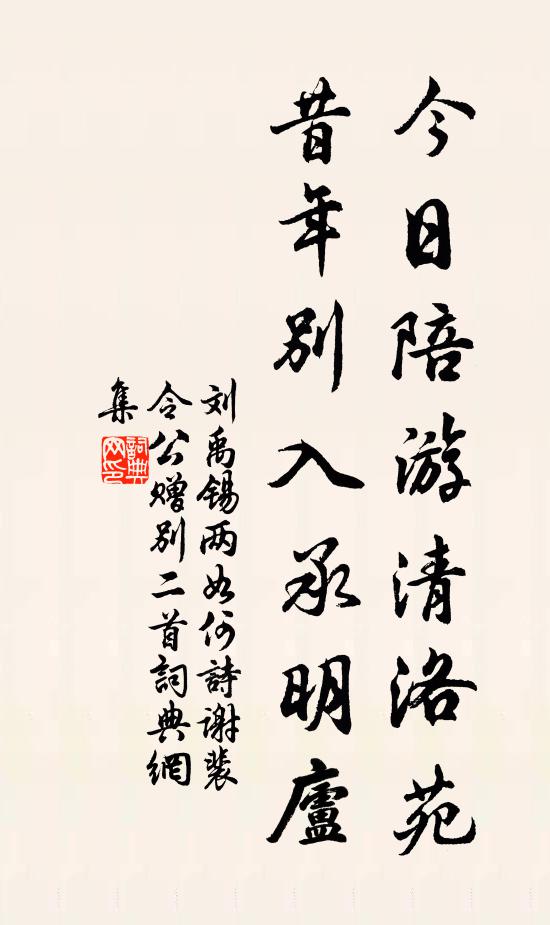 今日陪游清洛苑
昔年别入承明廬
刘禹锡两如何詩谢裴
令公赠别二首詞典網
集
詞典網